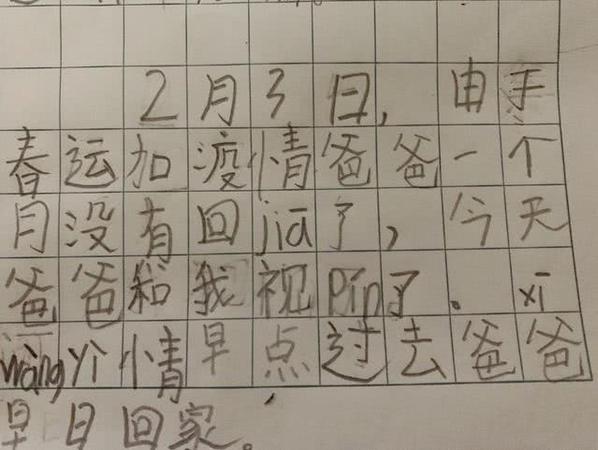 2月3日,由手
春运加疫情爸爸一个
月没有回jiā了,今天
爸爸和我视Pín了。xī
wàngyì情早点过去爸爸
早日回家。